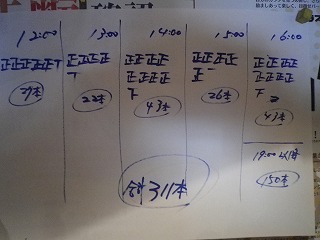 12:00
正正正正正丅
27本
13:00
正正正正
丅
22本
14:00
正正正正
正正正正
下
43本
15:00
正正正正
正一
26本
16:00
正正正正
正正正正
下
43本
19:00以降
150本
合計311本